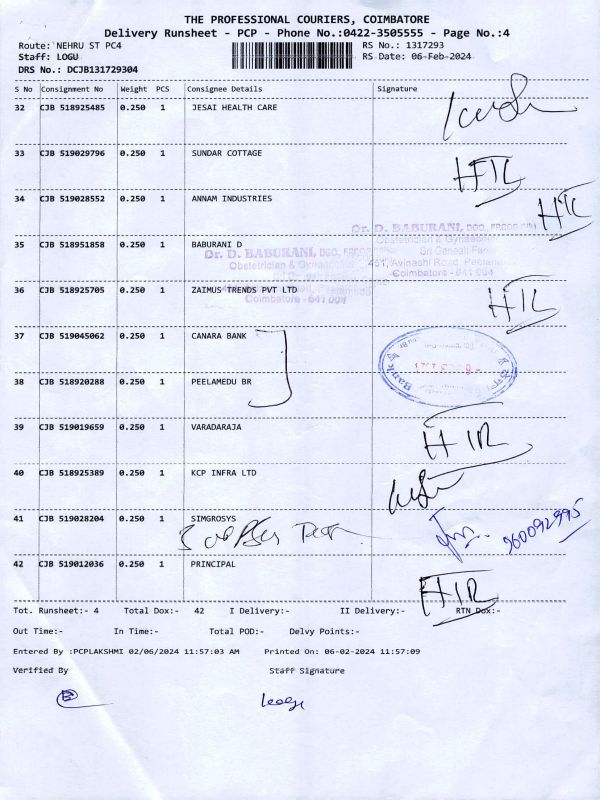 THE PROFESSIONAL COURIERS, COIMBATORE
Delivery Runsheet - PCP - Phone No.:0422-3505555 - Page No.:4
Route: NEHRU ST PC4 RS No.: 1317293
Staff: LOGU RS Date: 06-Feb-2024
DRS No.: DCJB131729304
S No Consignment No Weight PCS Consignee Details Signature
32 CJB 518925485 0.250 1 JESAI HEALTH CARE
33 CJB 519029796 0.250 1 SUNDAR COTTAGE
34 CJB 519028552 0.250 1 ANNAM INDUSTRIES
Dr. D. BABURANI, DGO,
35 CJB 518951858 0.250 1 BABURANI D
Obstetrician & Gynae
Sri Ganesh
Dr. D. BABURANI, DGO,
Obstetrician &
Avinashi Road,
Coimbatore - 641 004
36 CJB 518925705 0.250 1 ZAIMUS TRENDS PVT LTD
Coimbatore - 641 004
37 CJB 519045062 0.250 1 CANARA BANK
38 CJB 518920288 0.250 1 PEELAMEDU BR
39 CJB 519019659 0.250 1 VARADARAJA
40 CJB 518925389 0.250 1 KCP INFRA LTD
41 CJB 519028204 0.250 1 SIMGROSYS
42 CJB 519012036 0.250 1 PRINCIPAL
Tot. Runsheet:- 4 Total Dox:- 42 I Delivery:- II Delivery:- RTN Dox:-
Out Time:- In Time:- Total POD:- Delvy Points:-
Entered By :PCPLAKSHMI 02/06/2024 11:57:03 AM Printed On: 06-02-2024 11:57:09
Verified By Staff Signature